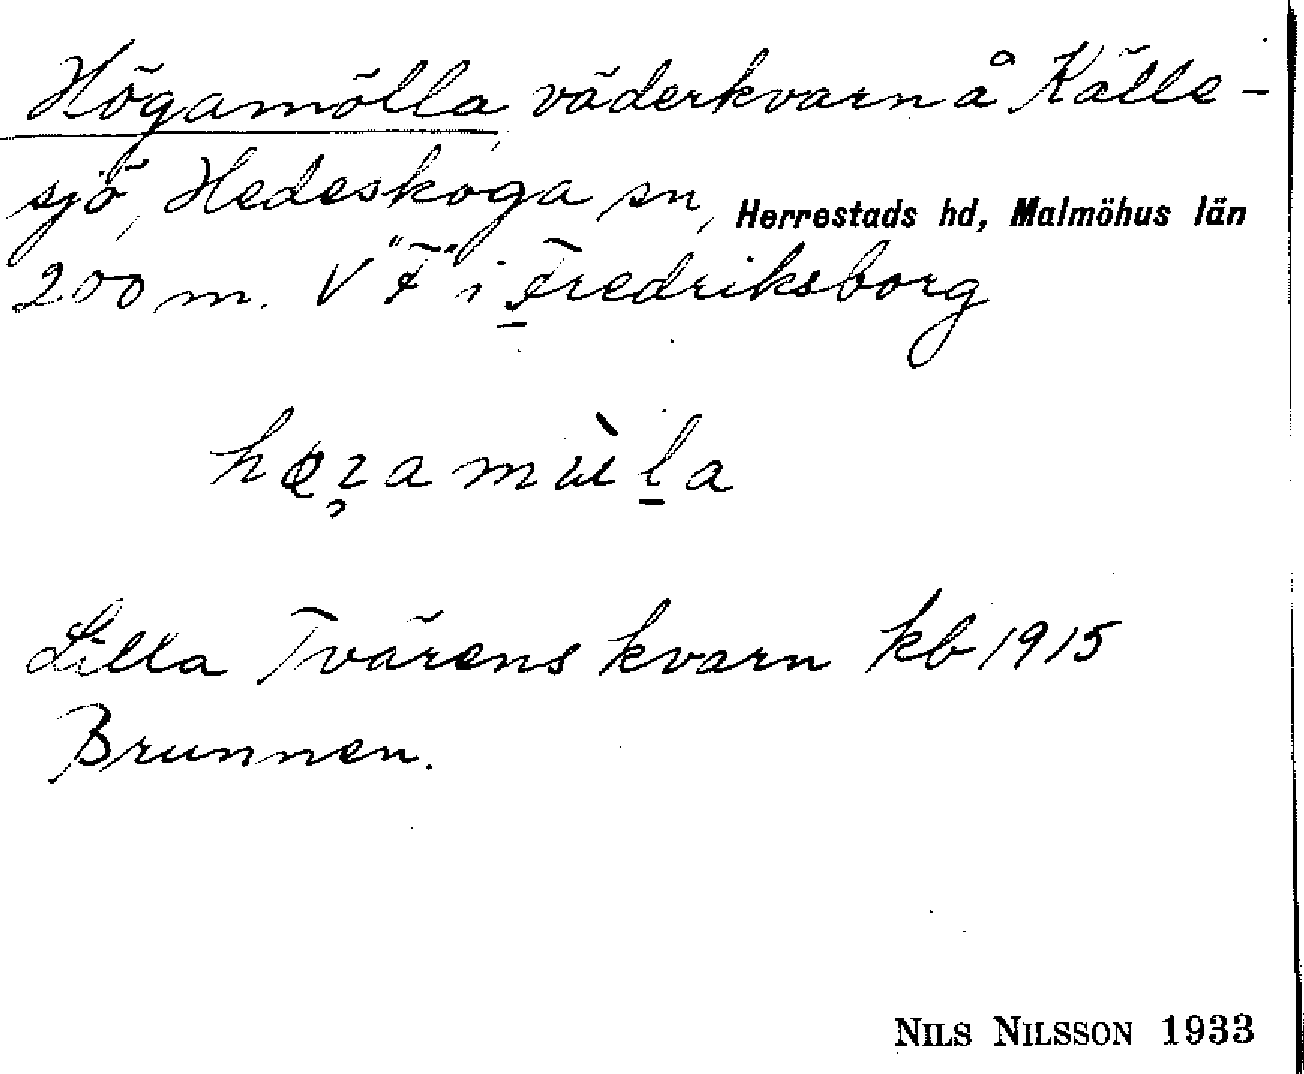 Högamölla, väderkvarn å Källe-
sjö, Hedeskoga sn, Herrestads hd, Malmöhus län
200 m. V "F" i Fredriksborg
Lilla Tvärens kvarn kb 1915
Brunnen.
NILS NILSSON 1933